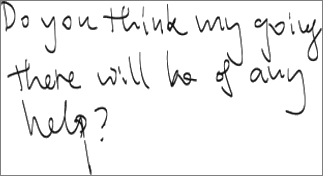 Do you think my going
there will be of any
help?